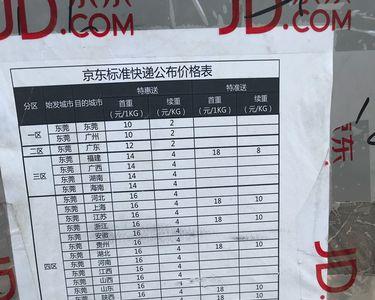 JD.COM
京东
JD.COM
京东标准快递公布价格表
分区 始发城市 目的城市 特惠送 特准送
首重 (元/1KG) 续重 (元/KG) 首重 (元/1KG) 续重 (元/KG)
一区 东莞 东莞 10 2
东莞 广州 10 2
二区 东莞 广东 12 2
三区 东莞 福建 14 4 18 8
东莞 广西 14 4
东莞 湖南 14 4
东莞 海南 14 4
四区 东莞 河北 16 4
东莞 上海 16 4 18 10
东莞 江苏 16 4
东莞 浙江 16 4
东莞 安徽 16 4
东莞 贵州 16 4 18 10
东莞 湖北 16 4
东莞 河南 16 4
东莞 江西 16 4
东莞 山西 16 4
东莞 山东 16 4 18 10
东莞 陕西 16 4 18 10
京东
JD.COM